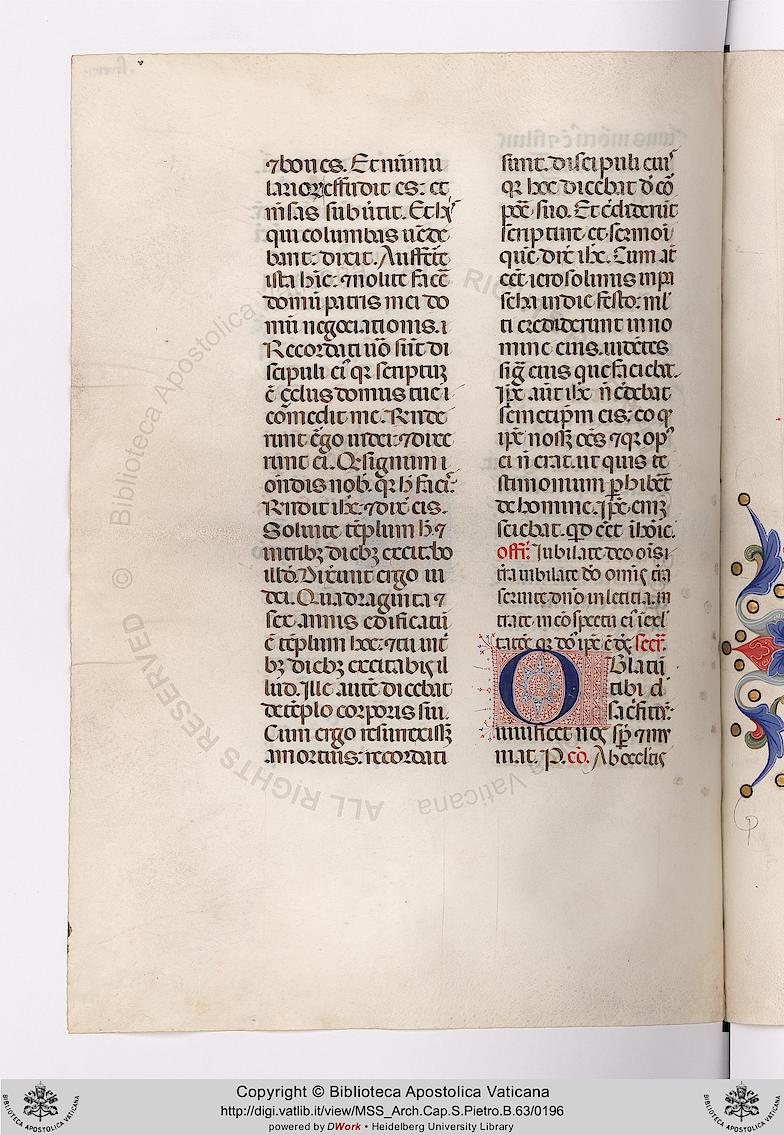 ⁊ boues. Et nūmu
lariorꝝ effūdit es: et
m̄sas subūtit. Et hijˢ
qui columbas uēde
bant: dixit. Auffer̄te
ista hīc: ⁊ nolite facēͤ
domū patris mei do
mū negociationis.
Recordati ūo sūt di
scipuli eiꝰ qꝛ scriptuꝫ
ē. Çelus domus tue
cōmedit me. Rn̄de
runt ēgo iudei: ⁊ dixe
runt ei. Qđ signum
on̄dis nob̄. qꝛ h̄ facis̄:
Rn̄dit ihc̄: ⁊ dix̄ eis.
Soluite tēplum h̄: ⁊
in tribꝫ diebꝫ excitabo
illd̄. Dixerunt ergo iu
dei. Quadraginta ⁊
sex annis edificatū
ē tēplum hoc: ⁊ tu int̄
bꝫ diebꝫ excitabis il
lud. Ille autē dicebat
de tēplo corporis sui.
Cum ergo resurrexissꝫ
a mortuis: recordati
sunt discipuli eiꝰ
qꝛ hoc dicebat d̄ cō
poꝛe suo. Et c̄diderūt
scripture et sermoī
quē dix̄ ihc̄. Cum aūt
eēt ierosolimis in pa
scha in die festo: ml̄
ti crediderunt in no
mine eius. uidētes
siḡ eius que faciebat.
Ip̄e aūt ihc̄ n̄ c̄debat
semetip̄m eis: eo qđ
ip̄e nossꝫ oēs ⁊ qꝛ opꝰ
ei n̄ erat. ut quis te
stimonium ꝑhibēͤt
de homine. Ip̄e enī
sciebat. qđ eēt ī hoīe.
offr̄. Iubilate deo oīs
tr̄a iubilate dō omīs tr̄a
seruite dn̄o in letitia. in
trate in cōspectu eiꝰ ī exl̄
tatōe qꝛ dn̄s ip̄e ē dꝰ. Secr̄.
Oblatū
tibi dn̄e
sac̄ficiū:
uiuificet nos sp̄ ⁊ mu
niat. P. cō. Ab occltis
Copyright © Biblioteca Apostolica Vaticana
http://digi.vatlib.it/view/MSS_Arch.Cap.S.Pietro.B.63/0196
powered by DWork • Heidelberg University Library
© Biblioteca Apostolica Vaticana
ALL RIGHTS RESERVED
BIBLIOTECA APOSTOLICA VATICANA
BIBLIOTECA APOSTOLICA VATICANA